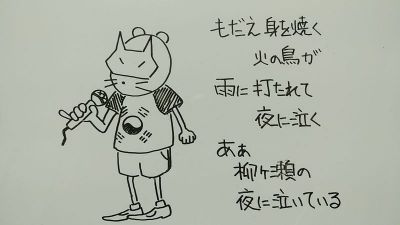 もだえ身を焼く
火の鳥が
雨に打たれて
夜に泣く
あぁ
柳ヶ瀬の
夜に泣いている